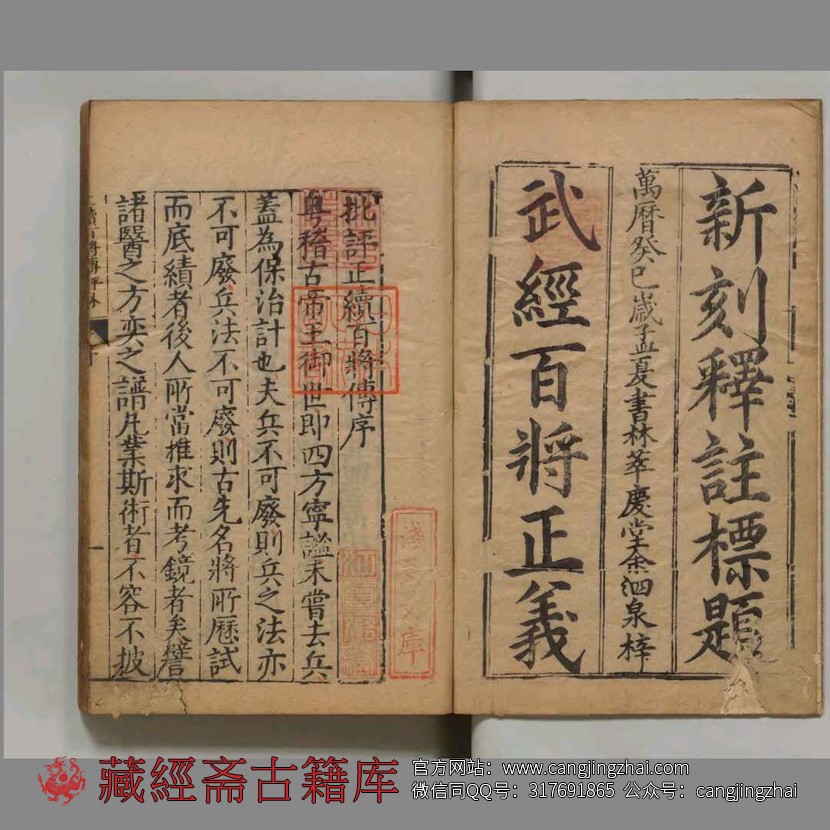 新刻釋註標題
萬曆癸巳歲孟夏書林萃慶堂余泗泉梓
武經百將正義
批評正續百將傳序
粵稽古帝王御世即四方寧謐未嘗去兵
蓋為保治計也夫兵不可廢則兵之法亦
不可廢兵法不可廢則古先名將所歷試
而底績者後人所當推求而考鏡者矣譬
諸醫之方奕之譜凡業斯術者不容不披
文庫
藏經斋古籍库
官方网站：www.cangjingzhai.com
微信同QQ号：317691865 公众号：cangjingzhai